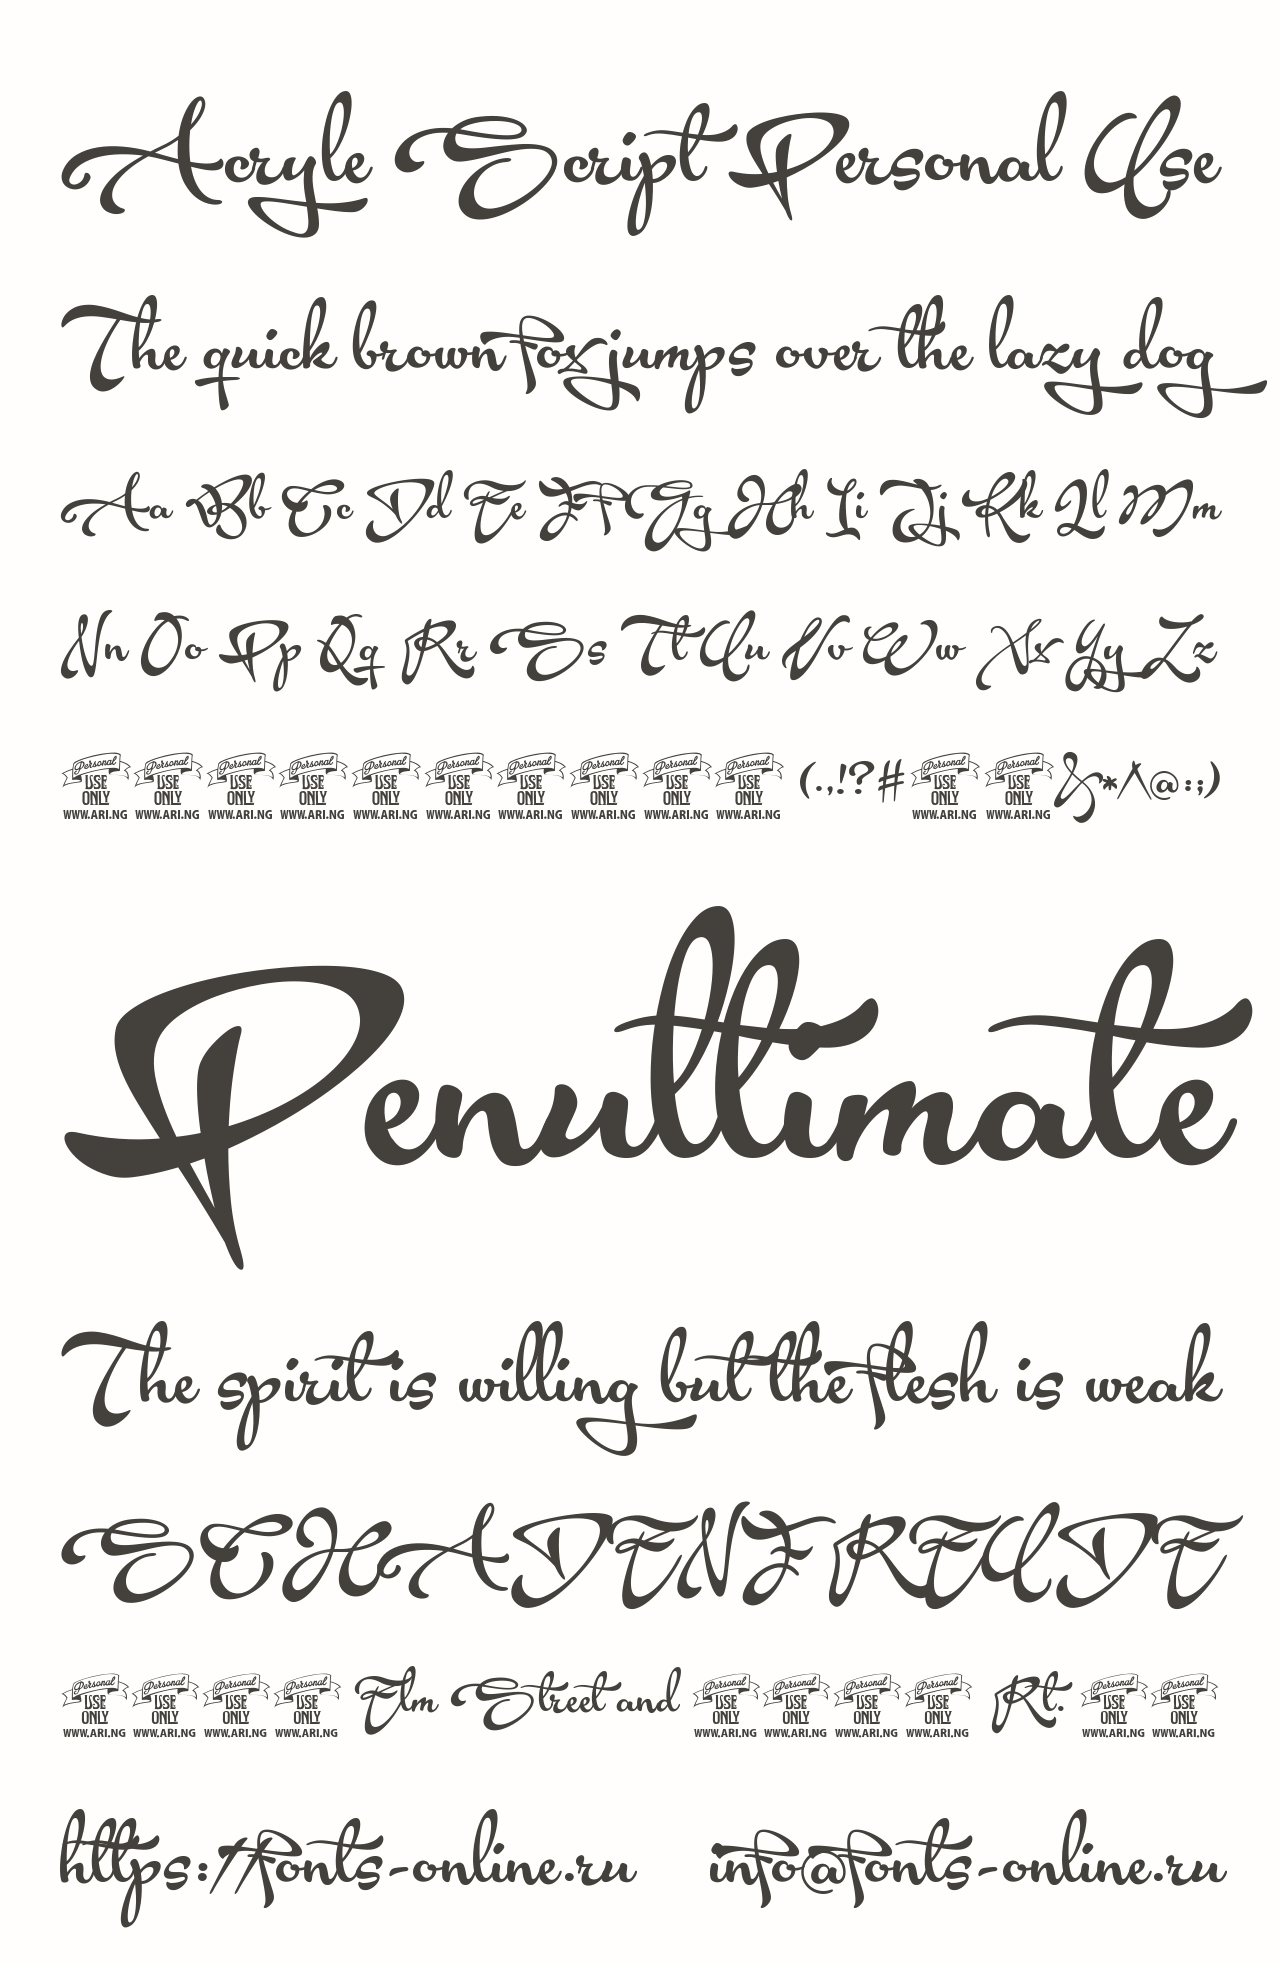 Acryle Script Personal Use
The quick brown fox jumps over the lazy dog
Aa Bb Cc Dd Ee Ff Gg Hh Ii Jj Kk Ll Mm
Nn Oo Pp Qq Rr Ss Tt Uu Vv Ww Xx Yy Zz
Personal USE ONLY WWW.ARI.NG Personal USE ONLY WWW.ARI.NG Personal USE ONLY WWW.ARI.NG Personal USE ONLY WWW.ARI.NG Personal USE ONLY WWW.ARI.NG Personal USE ONLY WWW.ARI.NG Personal USE ONLY WWW.ARI.NG Personal USE ONLY WWW.ARI.NG Personal USE ONLY WWW.ARI.NG Personal USE ONLY WWW.ARI.NG (.,!?# Personal USE ONLY WWW.ARI.NG Personal USE ONLY WWW.ARI.NG &*/\@:;)
Penultimate
The spirit is willing but the flesh is weak
SCHADENFREUDE
Personal USE ONLY WWW.ARI.NG Personal USE ONLY WWW.ARI.NG Personal USE ONLY WWW.ARI.NG Personal USE ONLY WWW.ARI.NG Elm Street and Personal USE ONLY WWW.ARI.NG Personal USE ONLY WWW.ARI.NG Personal USE ONLY WWW.ARI.NG Personal USE ONLY WWW.ARI.NG Rt. Personal USE ONLY WWW.ARI.NG Personal USE ONLY WWW.ARI.NG
https://fonts-online.ru info@fonts-online.ru